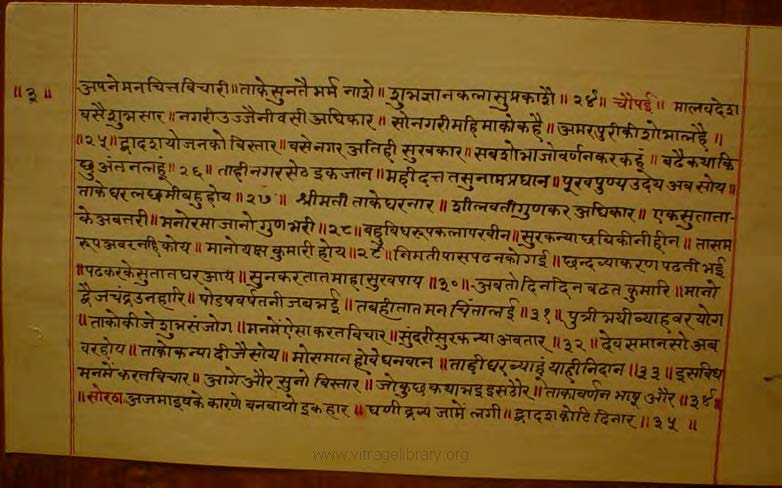 ॥३॥
अपनेमनचित्तविचारी॥ताकेसुनतैभर्मनाशे॥शुभज्ञानकलासुप्रकाशै॥२४॥चौपई॥मालवदेश
वसैशुभसार॥नगरीउज्जैनीवसीअधिकार॥सोनगरीमहिमाकोकहै॥अमरपुरीकीशोभालहै॥
॥२५॥द्वादशयोजनकोविस्तार॥वसेनगरअतिहीसुखकार॥सबशोभाजोवर्णनकरकहूं॥बढैकथाकि
छुअंतनलहूं॥२६॥ताहीनगरसेठइकजान॥महीदत्ततसुनामप्रधान॥पूरवपुण्यउदेयअबसोय॥
ताकेघरलछमीबहुहोय॥२७॥श्रीमतीताकेघरनार॥शीलवतीगुणकरअधिकार॥एकसुताता-
केअवतरी॥मनोरमाजानोगुणभरी॥२८॥बहुविधरूपकलापरवीन॥सुरकन्याछबिकीनीहीन॥तासम
रूपअवरनहिकोय॥मानोयक्षकुमारीहोय॥२९॥निमतीपासपढनकोगई॥छन्दव्याकरणपढतीभई
॥पढकरकेसुतानघरआय॥सुनकरतातमाहासुखपाय॥३०॥अबतोदिनदिनबढतकुमारि॥मानो
द्वैजचंद्रउनहारि॥षोडषवर्षतनीजबभई॥तबहीतातमनचिंतालई॥३१॥पुत्रीभयीव्याहवरयोग
॥ताकोकीजेशुभसंजोग॥मनमेंऐसाकरतविचार॥सुंदरीसुरकन्याअवतार॥३२॥देवसमानसोअब
वरहोय॥ताकोकन्यादीजैसोय॥मोसमानहोवेधनवान॥ताहीघरब्याहूंयाहीनिदान॥३३॥इसविध
मनमेंकरतविचार॥आगेऔरसुनोविस्तार॥जोकुछकथाभइइसठौर॥ताकावर्णनभाषूऔर॥३४॥
॥सोरठा॥अजमाइषकेकारणेबनवायोइकहार॥घणीद्रव्यजामेंलगी॥द्वादशकोटिदिनार॥३५॥
www.vitragelibrary.org